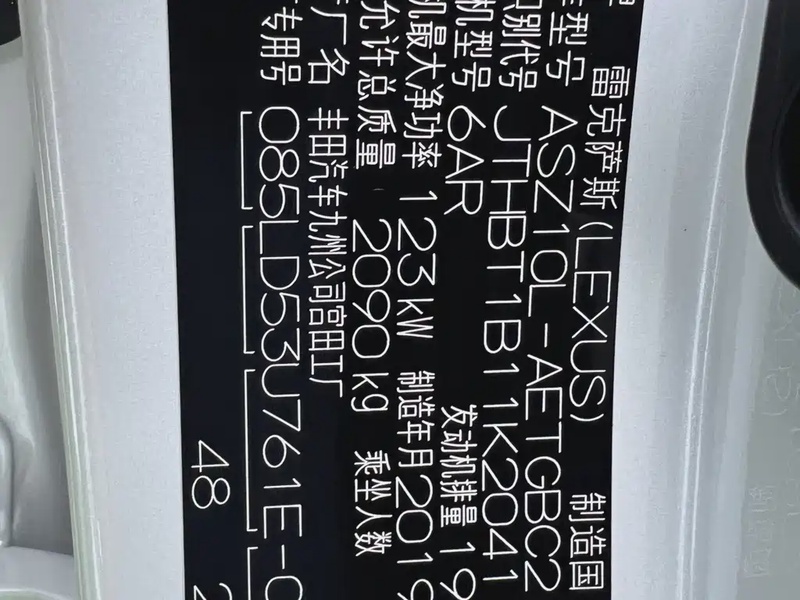 雷克萨斯(LEXUS) 制造国
车型号 ASZ10L-AETGBC2
识别代号 JTHBT1B11K2041
机型号 6AR 发动机排量 19
机最大净功率 123kW 制造年月 2019
允许总质量 2090kg 乘坐人数
厂名 丰田汽车九州公司宫田工厂
专用号 085LD53U761E-0
48 2